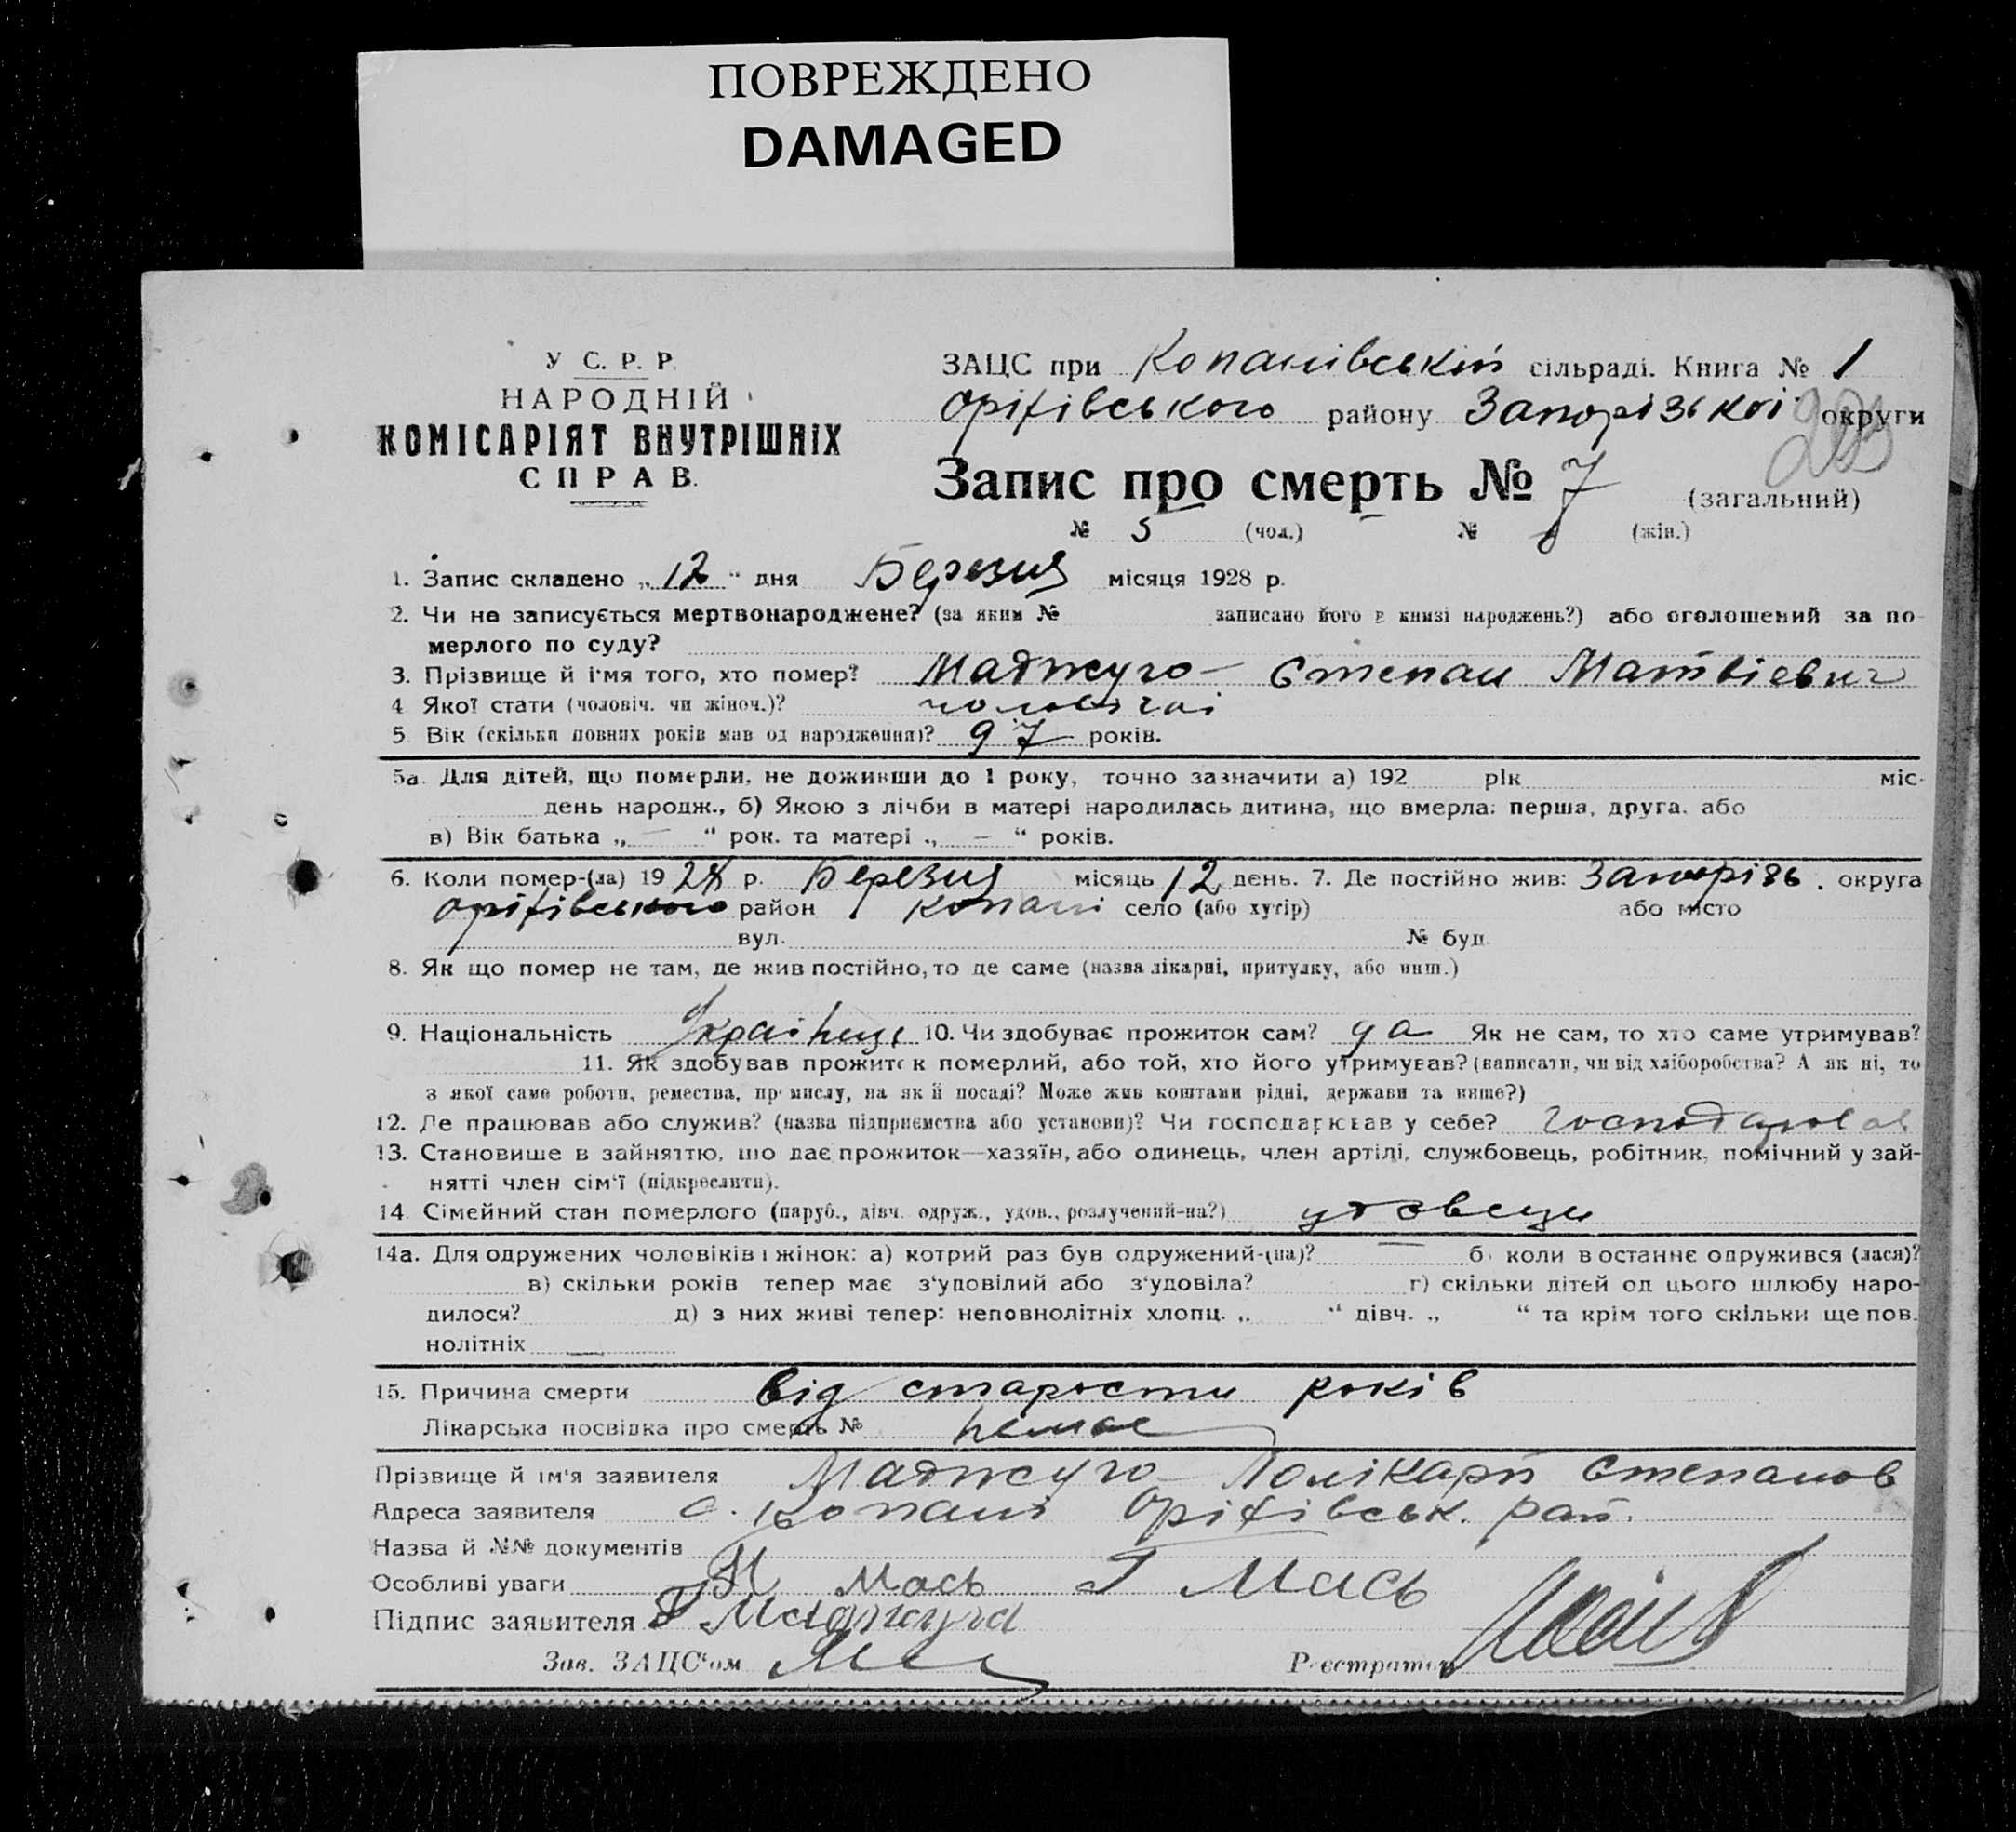 ПОВРЕЖДЕНО
DAMAGED
У С. Р. Р.
НАРОДНІЙ
КОМІСАРІЯТ ВНУТРІШНІХ
СПРАВ.
ЗАЦС при Копанівській сільраді. Книга № 1
Оріхівського району Запорізької округи
Запис про смерть № 7 (загальний)
№ 5 (чол.) № (жін.)
1. Запис складено „12“ дня Березня місяця 1928 р.
2. Чи не записується мертвонароджене? (за яким № записано його в книзі народжень?) або оголошений за по-
мерлого по суду?
3. Прізвище й і'мя того, хто помер? Маджуго – Степан Матвієвич
4 Якої стати (чоловіч. чи жіноч.)? чоловічої
5. Вік (скільки повних років мав од народження)? 97 років.
5а. Для дітей, що померли, не доживши до 1 року, точно зазначити а) 192 рік міс.
день народж., б) Якою з лічби в матері народилась дитина, що вмерла: перша, друга, або
в) Вік батька „ — “ рок. та матері „ — “ років.
6. Коли помер-(ла) 1928 р. Березня місяць 12 день. 7. Де постійно жив: Запорізь. округа
Оріхівського район Копані село (або хутір) або місто
вул. № буд.
8. Як що помер не там, де жив постійно, то де саме (назва лікарні, притулку, або инш.)
9. Національність Українець 10. Чи здобуває прожиток сам? да Як не сам, то хто саме утримував?
11. Як здобував прожиток померлий, або той, хто його утримував? (написати, чи від хліборобства? А як ні, то
з якої саме роботи, ремества, промислу, на якій посаді? Може жив коштами рідні, держави та инше?)
12. Де працював або служив? (назва підприємства або установи)? Чи господарював у себе? Господарював
13. Становище в зайняттю, що дає прожиток—хазяїн, або одинець, член артілі, службовець, робітник, помічний у зай-
нятті член сім'ї (підкреслити).
14. Сімейний стан померлого (паруб., дівч. одруж., удов., розлучений-на?) удовець
14а. Для одружених чоловіків і жінок: а) котрий раз був одружений-(на)? — б) коли в останнє одружився (лася)?
в) скільки років тепер має з'удовілий або з'удовіла? г) скільки дітей од цього шлюбу наро-
дилося? д) з них живі тепер: неповнолітніх хлопц. „ “ дівч. „ “ та крім того скільки ще пов.
нолітніх —
15. Причина смерти від старости років
Лікарська посвідка про смерть № немає
Прізвище й ім'я заявителя Маджуго – Полікарп Степанов
Адреса заявителя с. Копани Оріхівськ. рай.
Назва й №№ документів
Особливі уваги Мась Г Мась
Підпис заявителя Маджуга
Зав. ЗАЦС'ом
Реєстратор